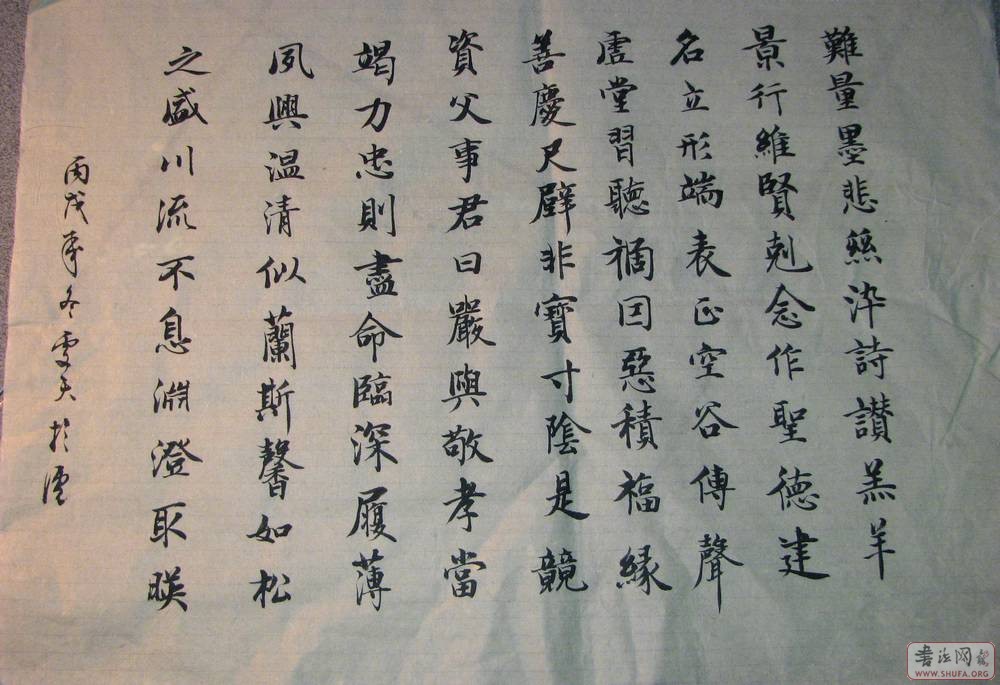 難量墨悲絲染詩讃羔羊
景行維賢剋念作聖德建
名立形端表正空谷傳聲
虛堂習聽禍因惡積福緣
善慶尺璧非寶寸陰是競
資父事君曰嚴與敬孝當
竭力忠則盡命臨深履薄
夙興温清似蘭斯馨如松
之盛川流不息淵澄取暎
丙戌年冬雯天於
书法网
WWW.SHUFA.ORG